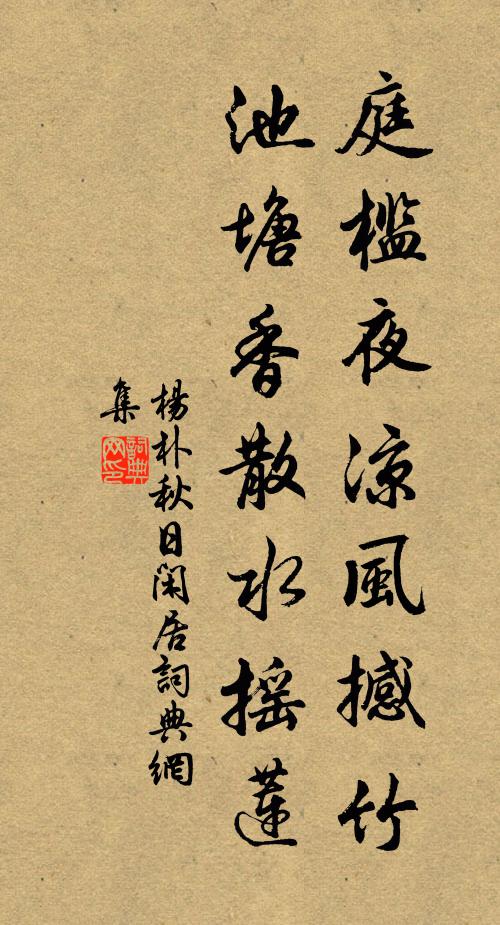 庭檻夜涼風撼竹
池塘香散水摇蓮
楊朴秋日閑居詞典網
集
詞典
网印